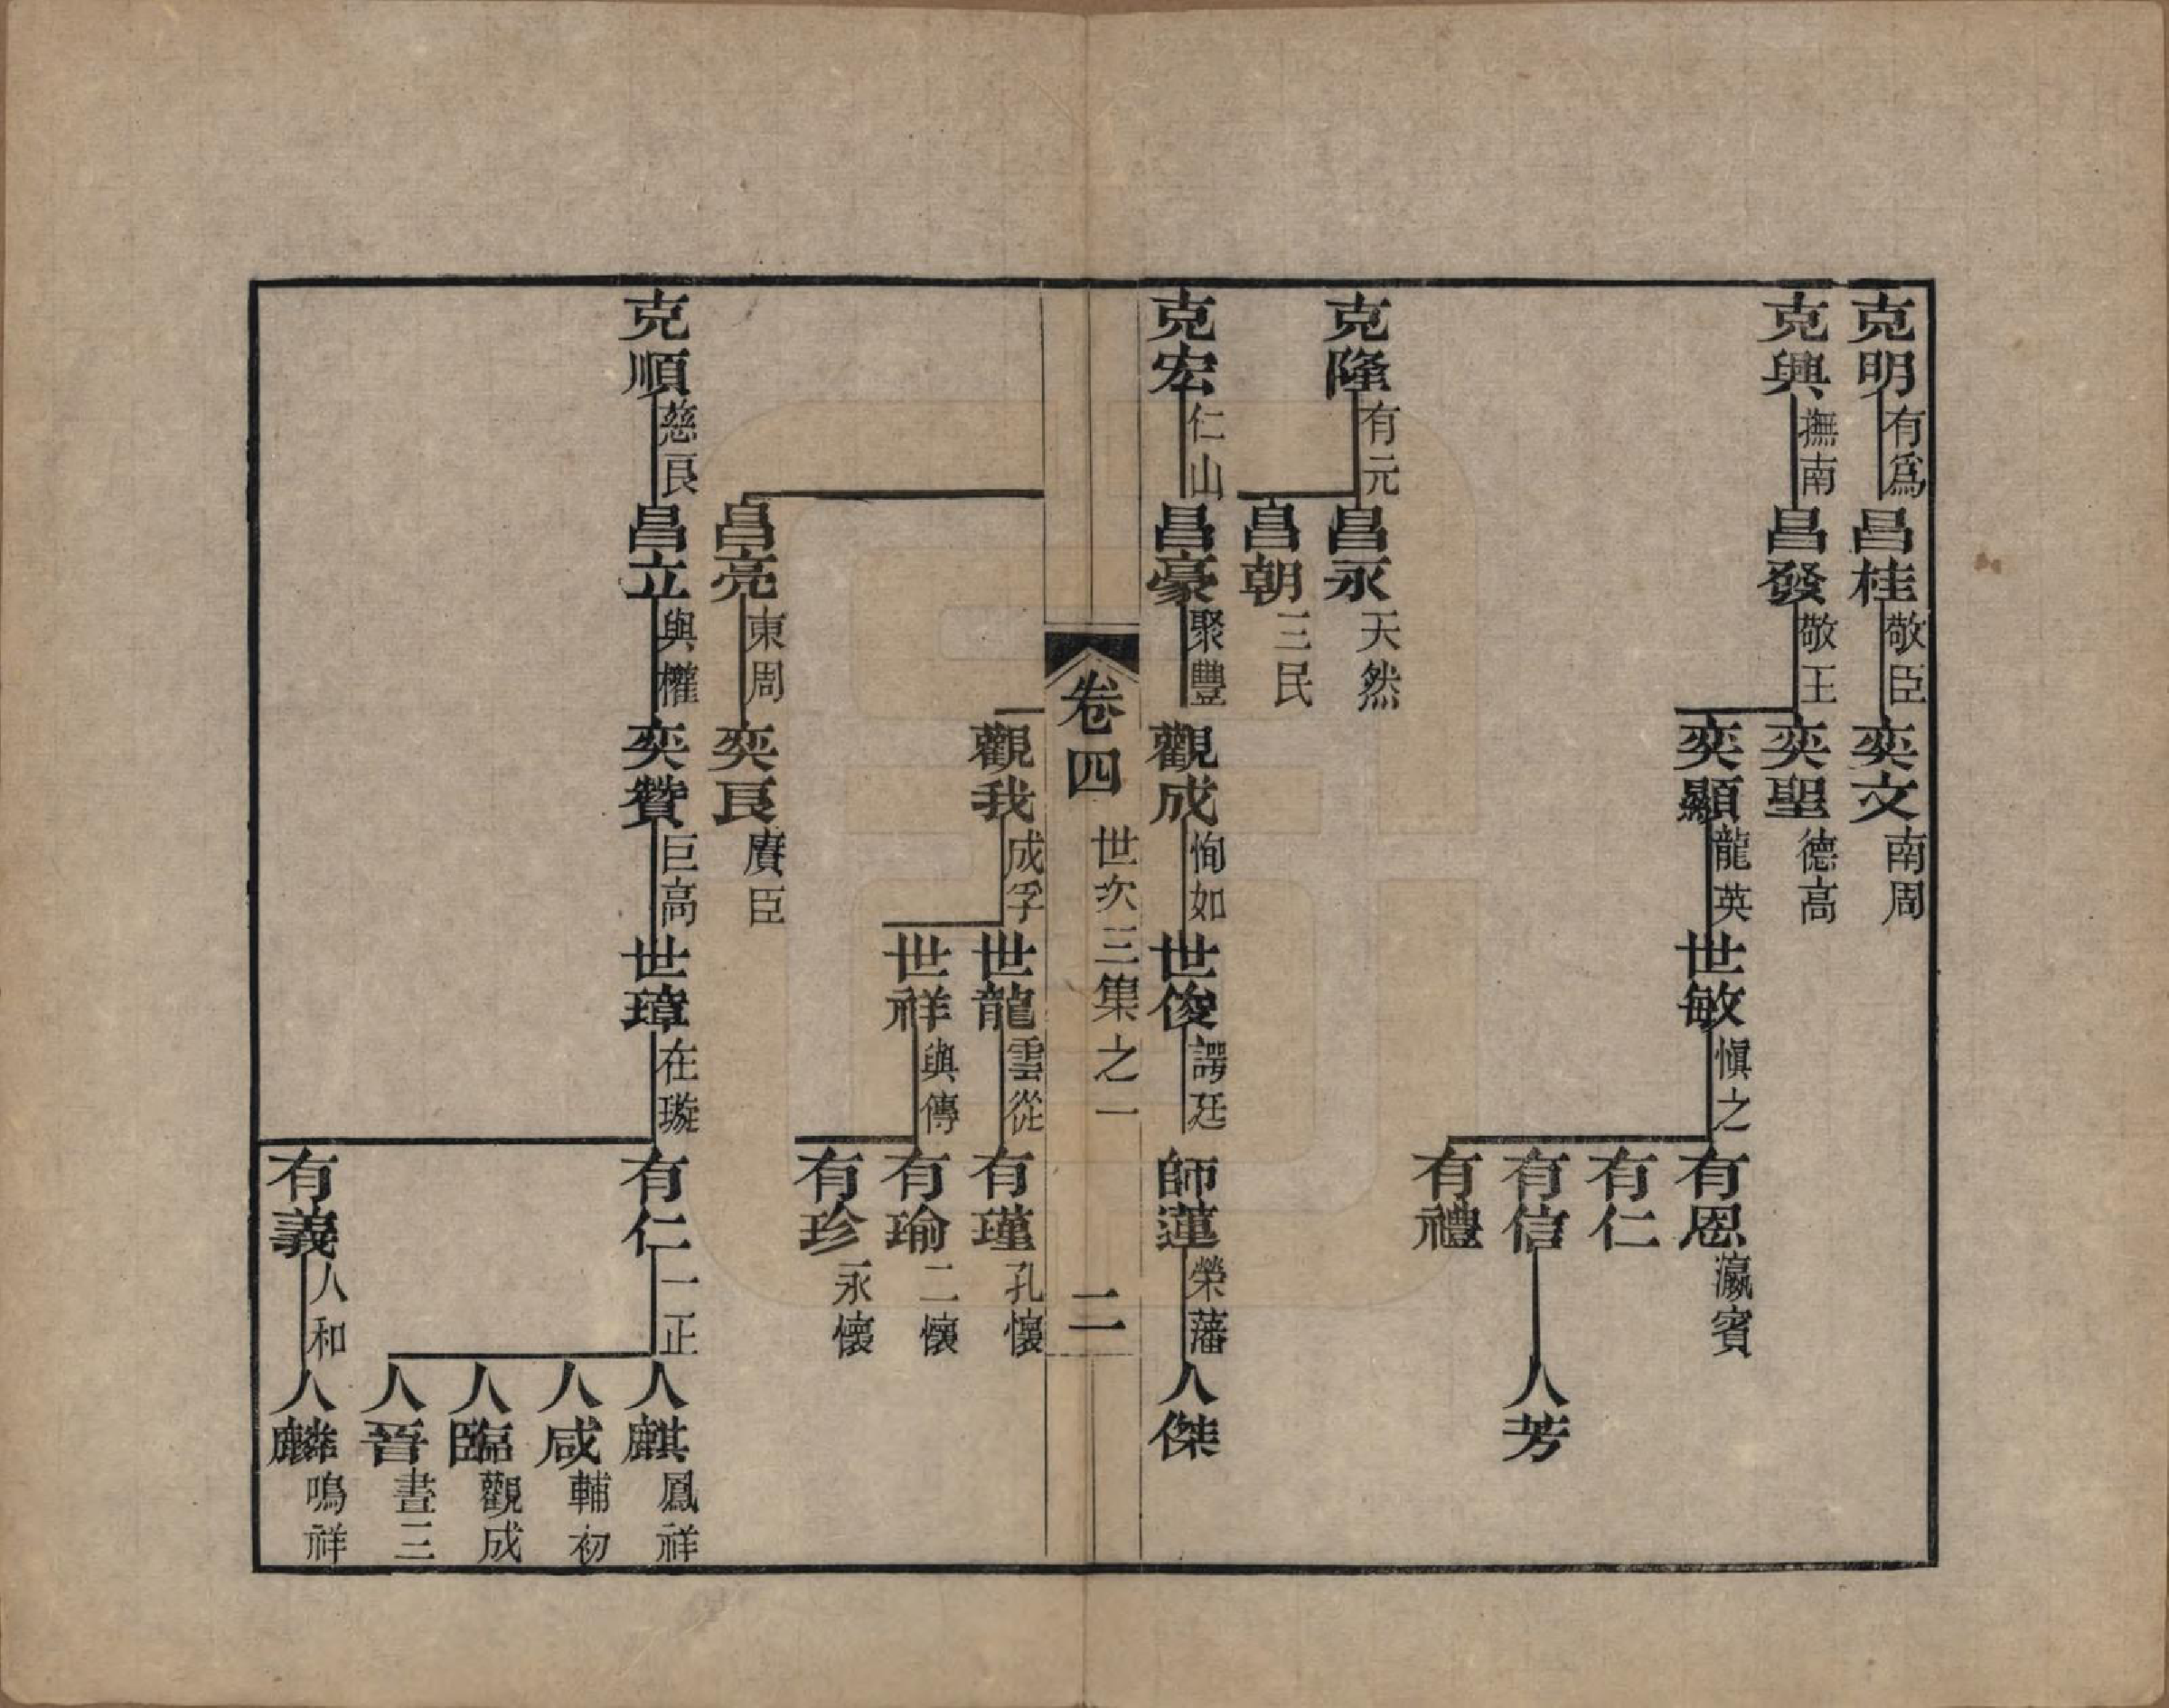 克明有爲昌桂敬臣奕文南周
克興撫南昌發敬王奕聖德高
奕顯龍英世敏愼之有恩瀛賓
有仁
有信人芳
有禮
克隆有元昌永天然
昌朝三民
克宏仁山昌豪聚豐觀成恂如世俊諤廷師蓮榮藩人傑
卷四 世次三集之一 二
觀我成孚世龍雲從有瑾孔懷
世祥與傳有瑜二懷
有珍永懷
昌亮東周奕良賡臣
克順慈良昌立與權奕贊巨高世璋在璇有仁一正人麒鳳祥
人咸輔初
人臨觀成
人晉晝三
有義人和人麟鳴祥